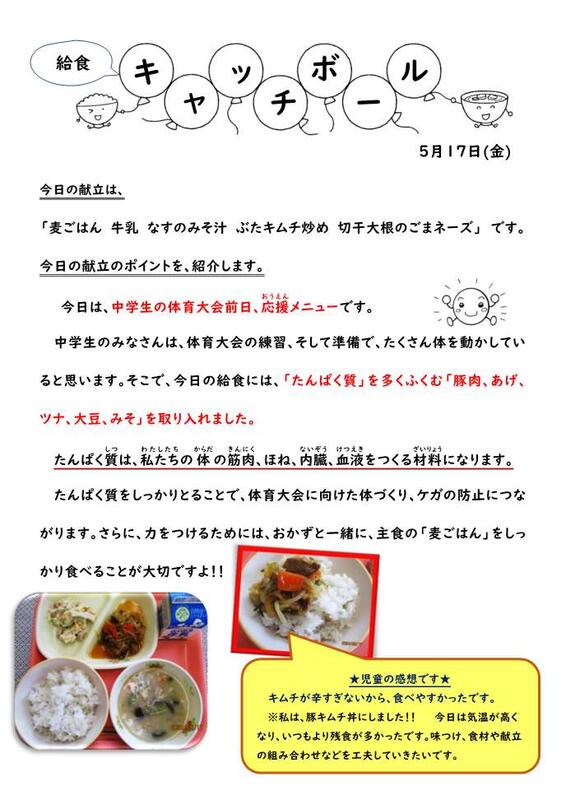 給食
キャッチボール
5月17日(金)
今日の献立は、
「麦ごはん 牛乳 なすのみそ汁 ぶたキムチ炒め 切干大根のごまネーズ」 です。
今日の献立のポイントを、紹介します。
今日は、中学生の体育大会前日、応援メニューです。
おうえん
中学生のみなさんは、体育大会の練習、そして準備で、たくさん体を動かしてい
ると思います。そこで、今日の給食には、「たんぱく質」を多くふくむ「豚肉、あげ、
ツナ、大豆、みそ」を取り入れました。
しつ わたしたち からだ きんにく ないぞう けつえき ざいりょう
たんぱく質は、私たちの体の筋肉、ほね、内臓、血液をつくる材料になります。
たんぱく質をしっかりとることで、体育大会に向けた体づくり、ケガの防止につな
がります。さらに、力をつけるためには、おかずと一緒に、主食の「麦ごはん」をしっ
かり食べることが大切ですよ!!
★児童の感想です★
キムチが辛すぎないから、食べやすかったです。
※私は、豚キムチ丼にしました!! 今日は気温が高く
なり、いつもより残食が多かったです。味つけ、食材や献立
の組み合わせなどを工夫していきたいです。